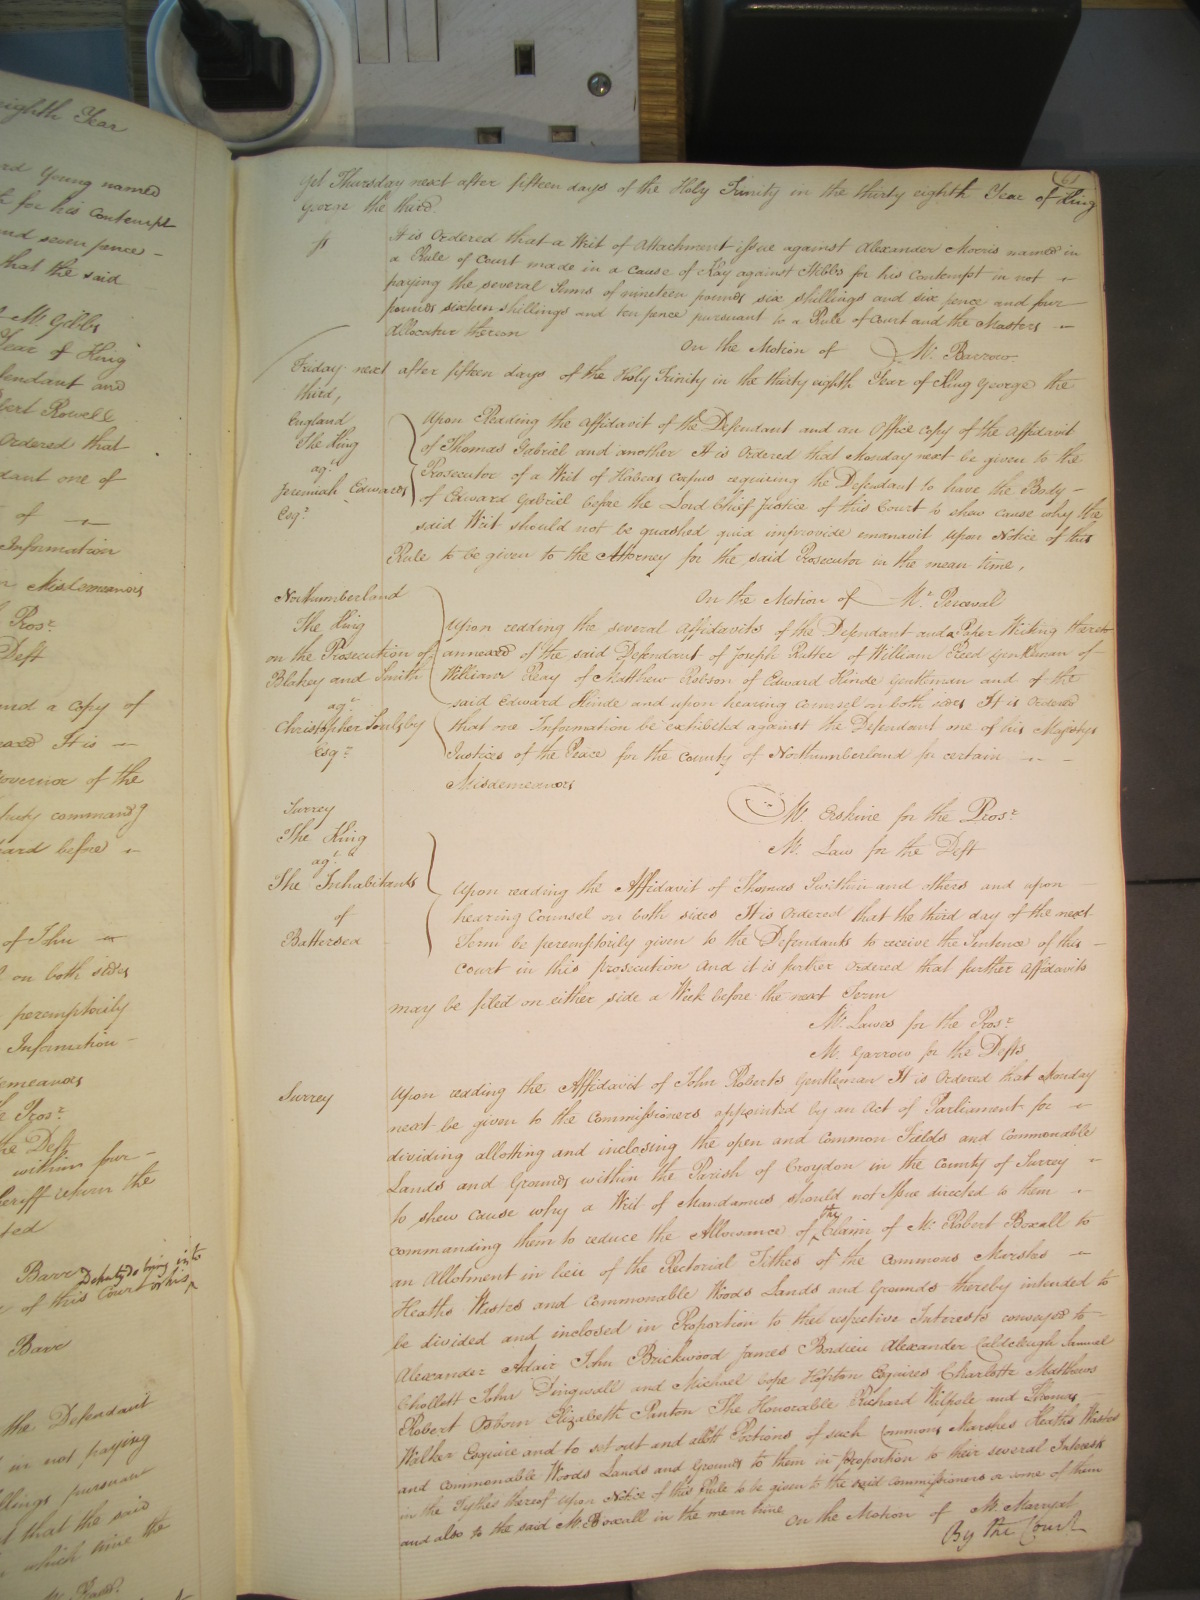 eighth Year
Young named
for his Contempt
and seven pence
that the said
Mr. Gibbs
Year of King
Defendant and
Robert Rowell
Ordered that
Defendant one of
of
Information
Misdemeanors
Prosr.
Deft
and a copy of
It is
Governor of the
before
of John
on both sides
peremptorily
Information
the Prosr.
the Deft
within four
Sheriff return the
Barr
of this Court
Barr
the Defendant
in not paying
shillings pursuant
that the said
which time the
61
Yet Thursday next after fifteen days of the Holy Trinity in the thirty eighth Year of King
George the third.
It is Ordered that a Writ of Attachment issue against Alexander Morris named in
a Rule of Court made in a Cause of Kay against Hibbs for his Contempt in not
paying the several Sums of nineteen pounds six shillings and six pence and four
pounds sixteen shillings and ten pence pursuant to a Rule of Court and the Masters
Allocatur thereon
On the Motion of Mr. Barrow.
Friday next after fifteen days of the Holy Trinity in the thirty eighth Year of King George the
third,
England
The King
agt.
Jeremiah Edwards
Esqr.
Upon Reading the Affidavit of the Defendant and an Office Copy of the Affidavit
of Thomas Gabriel and another It is Ordered that Monday next be given to the
Prosecutor of a Writ of Habeas Corpus requiring the Defendant to have the Body
of Edward Gabriel before the Lord Chief Justice of this Court to shew cause why the
said Writ should not be quashed quia improvide emanavit Upon Notice of this
Rule to be given to the Attorney for the said Prosecutor in the mean time,
On the Motion of Mr. Perceval
Northumberland
The King
on the Prosecution of
Blakey and Smith
agt.
Christopher Soulsby
Esqr.
Upon reading the several Affidavits of the Defendant and a Paper Writing thereto
annexed of the said Defendant of Joseph Rutter of William Reed Gentleman of
William Reay of Matthew Robson of Edward Hinde Gentleman and of the
said Edward Hinde and upon hearing Counsel on both sides It is Ordered
that one Information be exhibited against the Defendant one of his Majestys
Justices of the Peace for the County of Northumberland for certain
Misdemeanors
Mr. Erskine for the Prosr.
Mr. Law for the Deft
Surrey
The King
agt.
The Inhabitants
of
Battersea
Upon reading the Affidavit of Thomas Swithin and others and upon
hearing Counsel on both sides It is Ordered that the third day of the next
Term be peremptorily given to the Defendants to receive the Sentence of this
Court in this prosecution And it is further Ordered that further Affidavits
may be filed on either side a Week before the next Term
Mr. Lawes for the Prosr.
Mr. Garrow for the Defts
Surrey
Upon reading the Affidavit of John Roberts Gentleman It is Ordered that Monday
next be given to the Commissioners appointed by an Act of Parliament for
dividing allotting and inclosing the open and common Fields and Commonable
Lands and Grounds within the Parish of Croydon in the County of Surrey
to shew cause why a Writ of Mandamus should not Issue directed to them
commanding them to reduce the Allowance of the Claim of Mr. Robert Boxall to
an Allotment in lieu of the Rectorial Tithes of the Commons Marshes
Heaths Wastes and Commonable Woods Lands and Grounds thereby intended to
be divided and inclosed in Proportion to the respective Interests conveyed to
Alexander Adair John Brickwood James Bordieu Alexander Caldcleugh Samuel
Chollett John Dingwall and Michael Cope Hopton Esquires Charlotte Matthews
Robert Osborn Elizabeth Panton The Honorable Richard Walpole and Thomas
Walker Esquire and to set out and allott Portions of such Commons Marshes Heaths Wastes
and commonable Woods Lands and Grounds to them in proportion to their several Interests
in the Tythes thereof Upon Notice of this Rule to be given to the said Commissioners or some of them
and also to the said Mr. Boxall in the mean time On the Motion of Mr. Marryat
By the Court